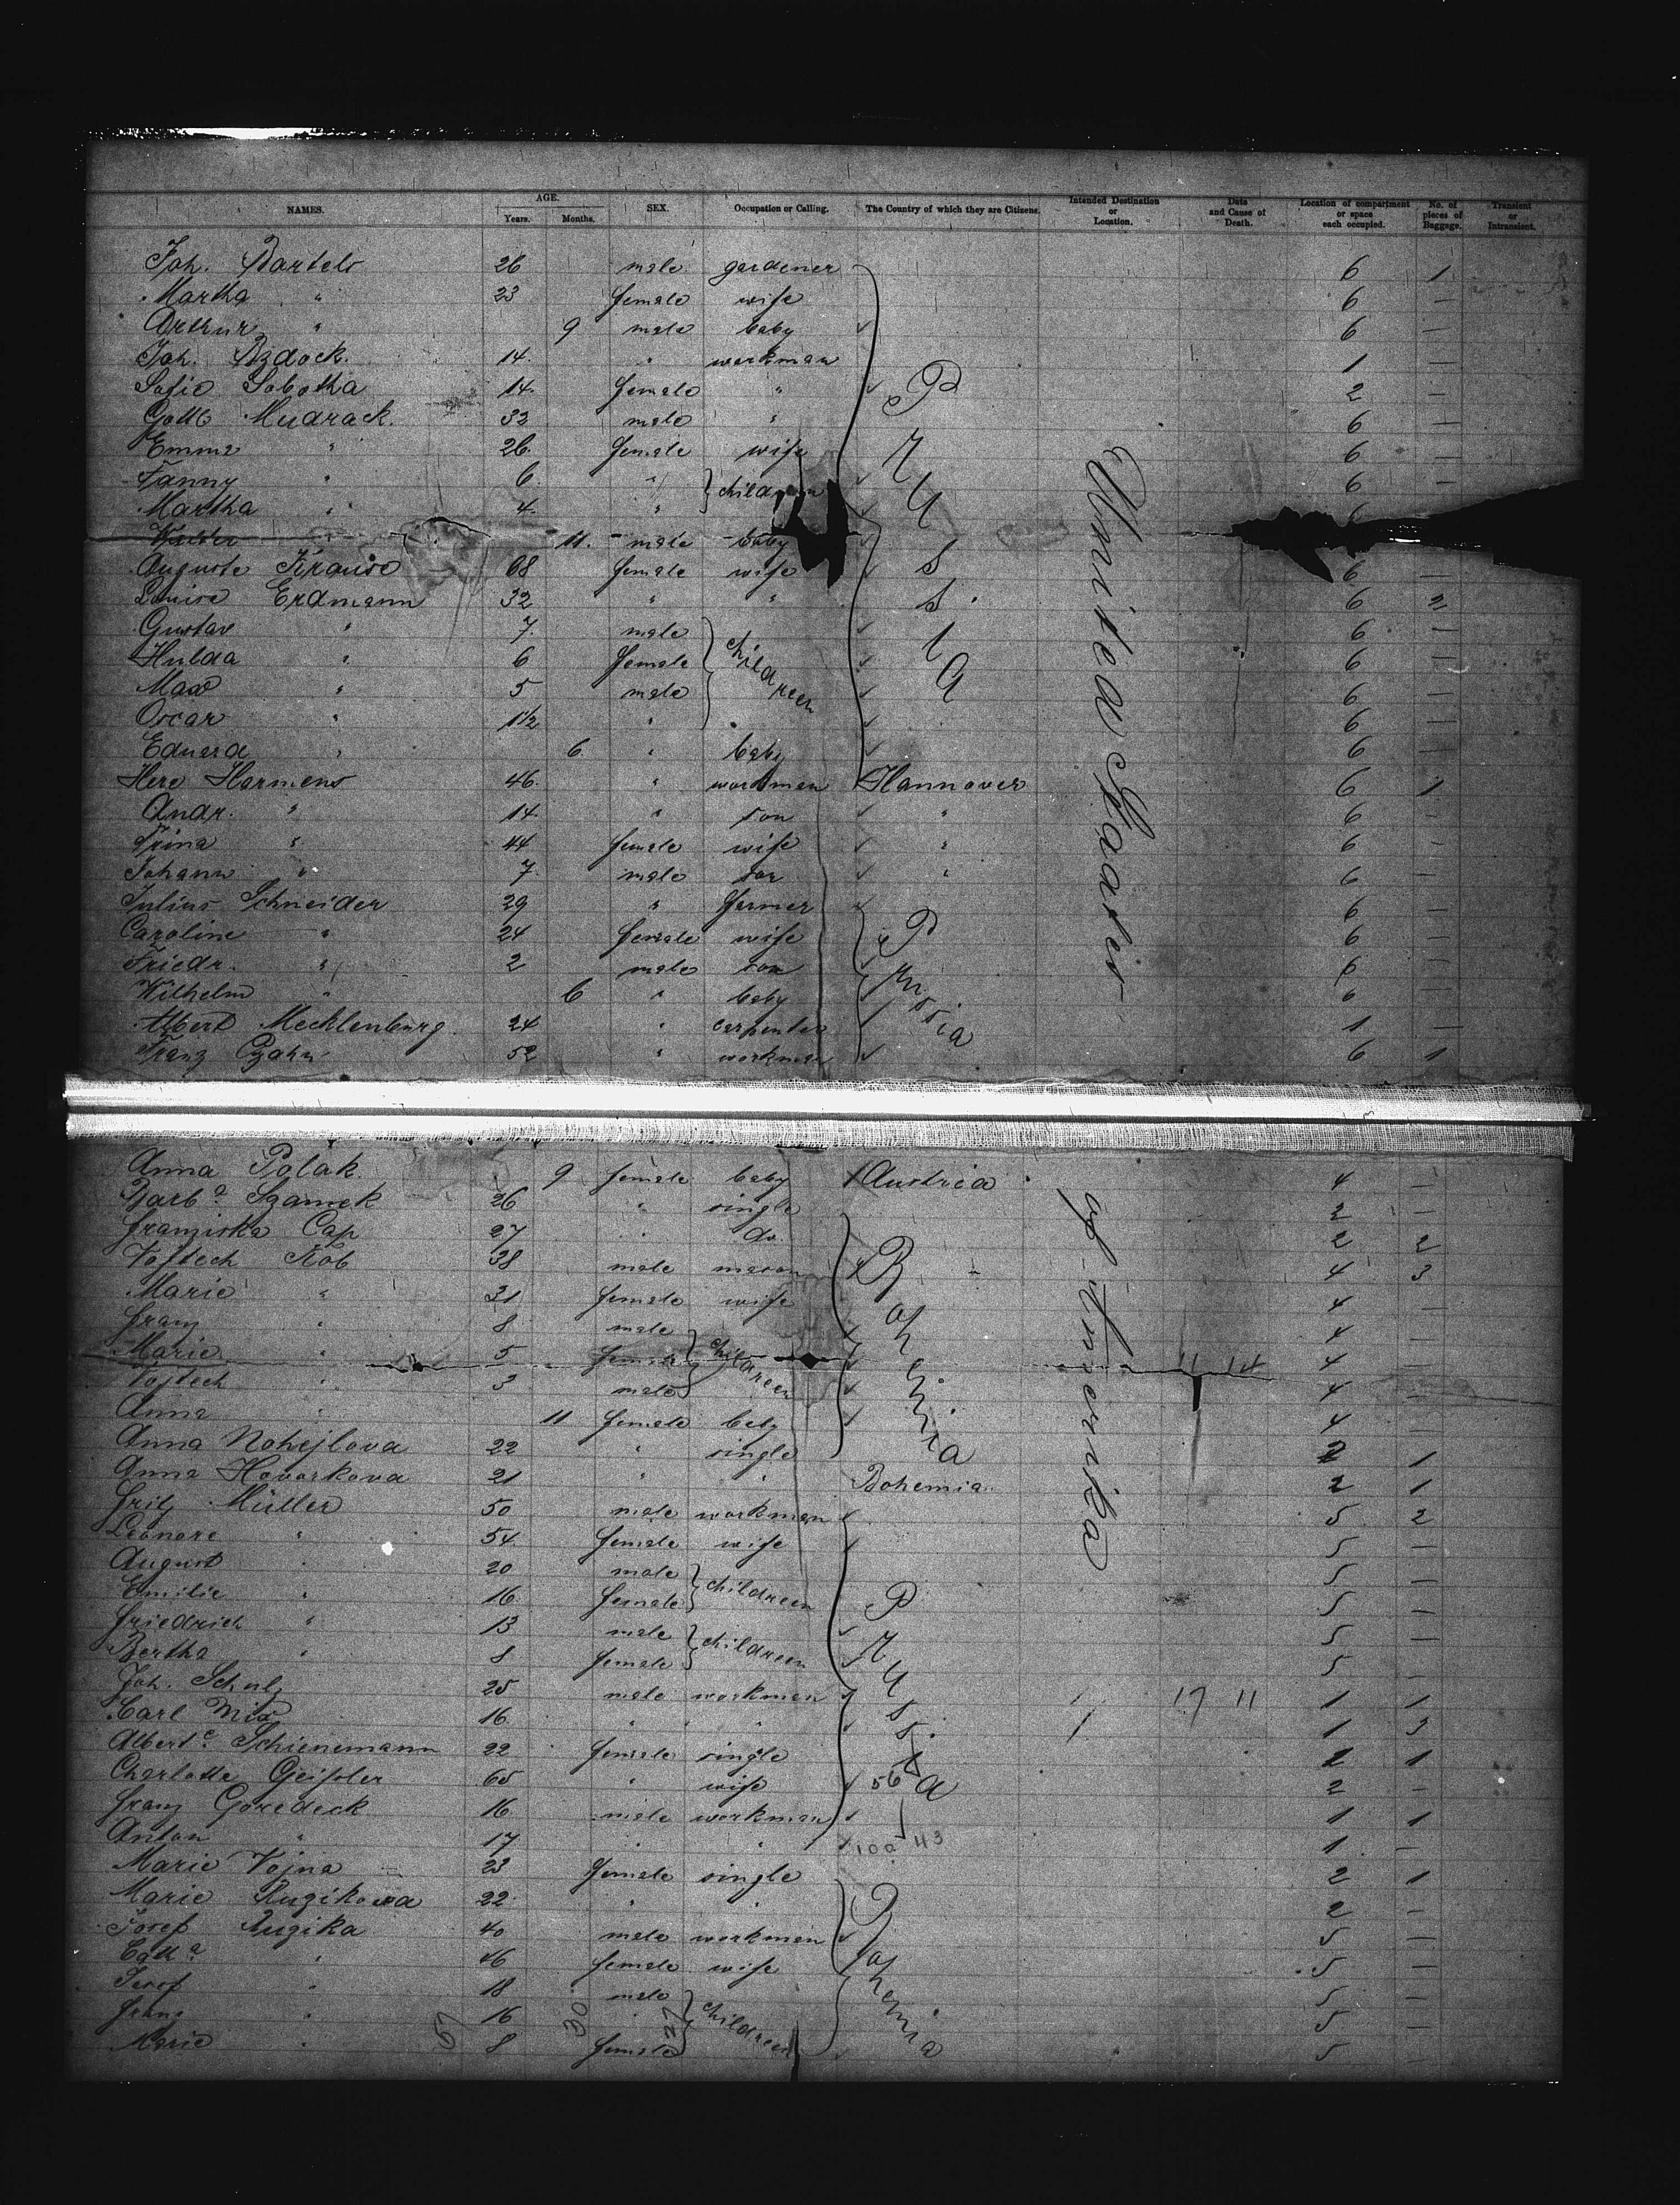 NAMES. AGE. Years. Months. SEX. Occupation or Calling. The Country of which they are Citizens. Intended Destination or Location. Date and Cause of Death. Location of compartment or space each occupied. No. of pieces of Baggage. Transient or Intransient.
Joh. Bartels 26 male gardener 6 1
Martha " 23 female wife 6 —
Arthur " 9 male baby 6 —
Joh. 14. " workman 1 —
Sofie Sobotha 14. female " 2 —
Gottl Mudrack. 32 male " 6 —
Emma " 26. female wife 6 —
Fanny " 6 " children 6 —
Martha " 4. " 6
11. male baby
Auguste Krause 68 female wife 6 —
Louise Erdmann 32 " " 6 2
Gustav " 7. male children 6 —
Hulda " 6 female 6 —
Max " 5 male 6 —
Oscar " 1½ " 6 —
Eduard " 6 " baby 6 —
Prussia
United States
Here Harmens 46. " workman Hannover 6 1
Andr. " 14. " son " 6 -
Trina " 44 female wife " 6 -
Johann " 7. male son " 6 —
Julius Schneider 29 " farmer 6 —
Caroline " 24 female wife 6 —
Friedr. " 2 male son 6 —
Wilhelm " 6 " baby 6 —
Albert Mecklenburg. 24 " carpenter 1 —
Franz 52 " workman 6 1
Prussia
Anna Polak. 9 female baby Austria 4 —
Barbª Szamek 26 " single 2 —
Franziska Cap 27 " do. 2 2
Vojtech Kob 38 male mason 4 3
Marie " 31 female wife 4 —
Franz " 8 male children 4 —
Marie " 5 female 4 —
Vojtech " 3 male 4 —
Anna " 11 female baby 4 —
Anna Nohejlova 22 " single 2 1
Bohemia
of Amerika
Anna Hovorkova 21 " " Bohemia. 2 1
Fritz Müller 50 male workman 5 2
Leonore " 54 female wife 5 —
August " 20 male children 5 —
Emilie " 16. female 5 —
Friedrich " 13 male children 5 —
Bertha " 8 female 5 —
Joh. Schulz 25 male workman 17 11 1 1
Carl Nix 16. " " 1 3
Albertᵉ Schienemann 22 female single 2 1
Charlotte Geissler 65 " wife 56 2 —
Franz Goredeck 16 male workman 1 1
Anton " 17 " " 100 43 1 -
Prussia
Marie Vojna 23 female single 2 1
Marie Ruzikova 22. " " 2 —
Josef Ruzika 40 male workman 5 —
Cathª " 46 female wife 5 —
Josef " 18 male children 5 —
Franz " 16 " 5 —
Marie " 8 female 5 —
Bohemia